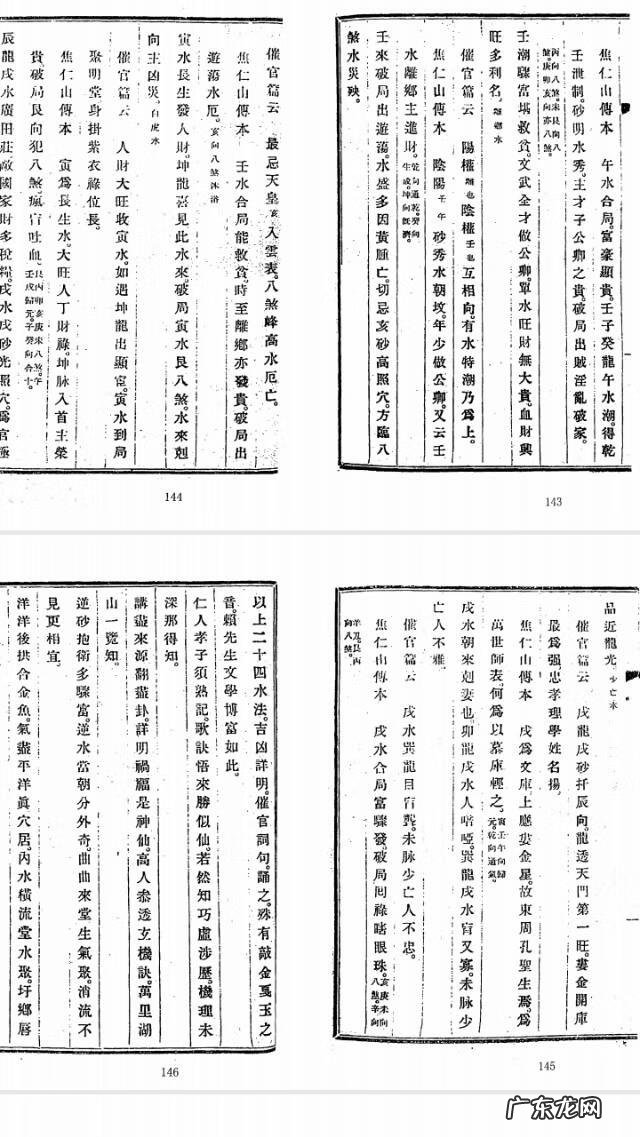 焦仁山傳本　午水合局富豪顯貴壬子癸龍午水潮得乾
壬泄制砂明水秀主才子公卿之貴破局出賊淫亂破家
丙向八煞寅艮向八
煞庚卯亥向亦八煞
壬潮驟富堪救貧文武全才做公卿單水旺財無大貴血財興
旺多利名
催官篇云　陽權也陰權壬也互相向有水特潮乃爲上
焦仁山傳本　陰陽壬午砂秀水朝坟年少做公卿又云壬
水離鄉主進財
壬來破局出遊蕩水盛多因黃腫亡切忌亥砂高照穴方臨八
煞水災殃
143
催官篇云　最忌天皇亥入雲表八煞峰高水厄亡
焦仁山傳本　壬水合局能救貧時至離鄉亦發貴破局出
遊蕩水厄亥向八煞沐浴
寅水長生發人財坤龍喜見此水來破局寅水艮八煞水來剋
向主凶災白虎水
催官篇云　人財大旺收寅水如遇坤龍出顯宦寅水到局
聚明堂身掛紫衣祿位長
焦仁山傳本　寅爲長生水大旺人丁財祿坤脉入首主榮
貴破局艮向犯八煞瘋盲吐血
辰龍戌水廣田莊敵國家財多稅糧戌水戌砂光照穴爲官極
144
品近龍光少亡水
催官篇云　戌龍戌砂扦辰向龍透天門第一旺婁金開庫
最爲强忠孝理學姓名揚
焦仁山傳本　戌爲文庫上應婁金星故東周孔聖生焉爲
萬世師表何爲以墓庫輕之寅壬午向歸元乾向通氣
戌水朝來剋妻也卯龍戌水人啞啞巽龍戌水盲又寡未脉少
亡人不雅
催官篇云　戌水巽龍目盲聾未脉少亡人不忠
焦仁山傳本　戌水合局富驟發破局問祿瞎眼珠亥庚未向八煞辛向
羊刃艮丙
向八煞
145
以上二十四水法吉凶詳明催官詞句誦之殊有敲金戛玉之
音賴先生文學博富如此
仁人孝子須熟記歌訣悟來勝似仙若然知巧虛涉歷機理未
深那得知
講盡來源翻盡卦詳明禍福是神仙高人叅透玄機訣萬里湖
山一覽知
逆砂抱衛多驟富逆水當朝分外奇曲曲來堂生氣聚消流不
見更相宜
洋洋後拱合金魚氣盡平洋眞穴居內水橫流堂水聚圩鄉唇
146
广东龙网